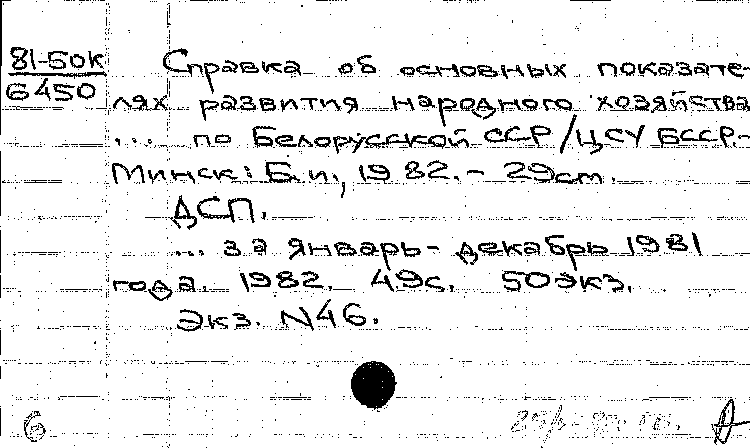 81-БОК Справка об основных показате-
6450 лях развития народного хозяйства
... по Белорусской ССР/ЦСУ БССР.-
Минск: Б.и., 1982. - 29см.
ДСП.
... за январь - декабрь 1981
года. 1982. 49с. 50экз.
Экз. N46.
6